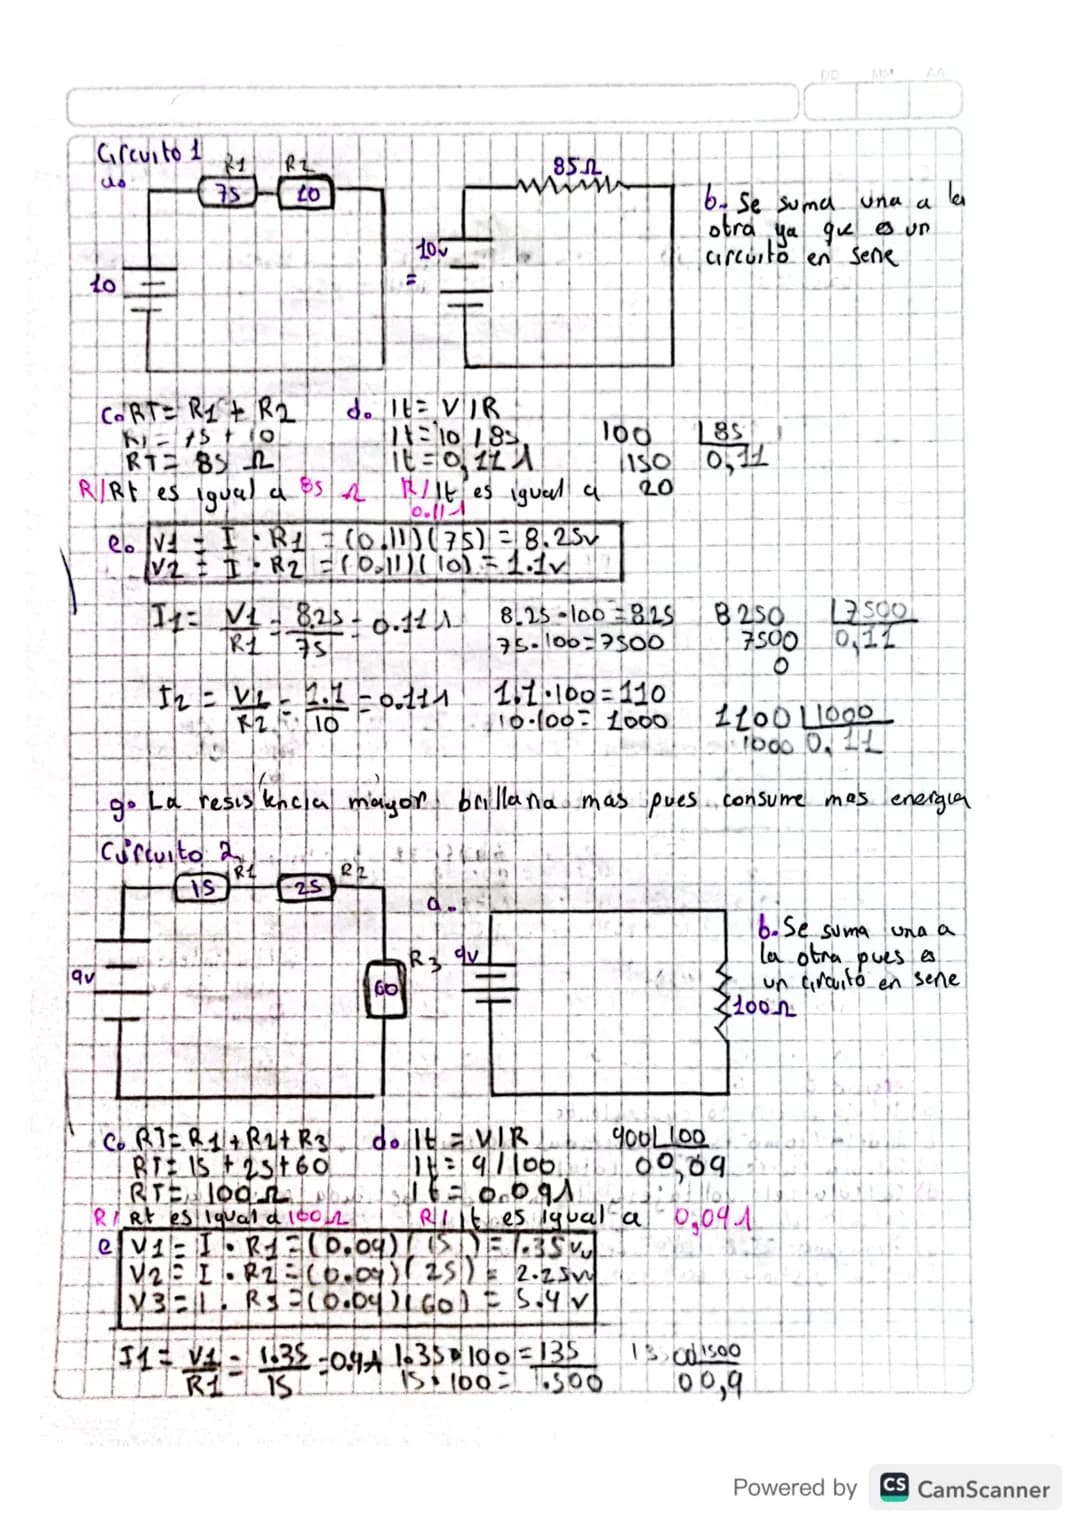 DD MM AA
Circuito 1
R1 R2
a.
75 10
10
85Ω
10v
=
b. Se suma una a la
otra ya que es un
circuito en serie
c. RT = R1 + R2
RT = 75 + 10
RT = 85 Ω
R/Rt es igual a 85 Ω
d. It = V/R
It = 10/85
It = 0,11A
R/It es igual a
0.11A
100 85
150 0,11
20
e. V1 = I · R1 = (0.11)(75) = 8.25v
V2 = I · R2 = (0.11)(10) = 1.1v
I1 = V1/R1 = 8.25/75 = 0.11A
8.25·100 = 825
75·100 = 7500
8250 7500
7500 0,11
0
I2 = V2/R2 = 1.1/10 = 0.11A
1.1·100 = 110
10·100 = 1000
1100 1000
1000 0.11
g. La resistencia mayor brillaria mas pues consume mas energia
Circuito 2
R1 R2
15 25
9v
60
R3
a.
9v
100Ω
b. Se suma una a
la otra pues es
un circuito en serie
c. RT = R1 + R2 + R3
RT = 15 + 25 + 60
RT = 100Ω
R/Rt es igual a 100Ω
d. It = V/R
It = 9/100
It = 0.09A
R/It es igual a 0,09A
900 100
00,09
e V1 = I · R1 = (0.09)(15) = 1.35v
V2 = I · R2 = (0.09)(25) = 2.25v
V3 = I · R3 = (0.09)(60) = 5.4v
I1 = V1/R1 = 1.35/15 = 0.9A
1.35·100 = 135
15·100 = 1.500
1500
00,9
Powered by CS CamScanner